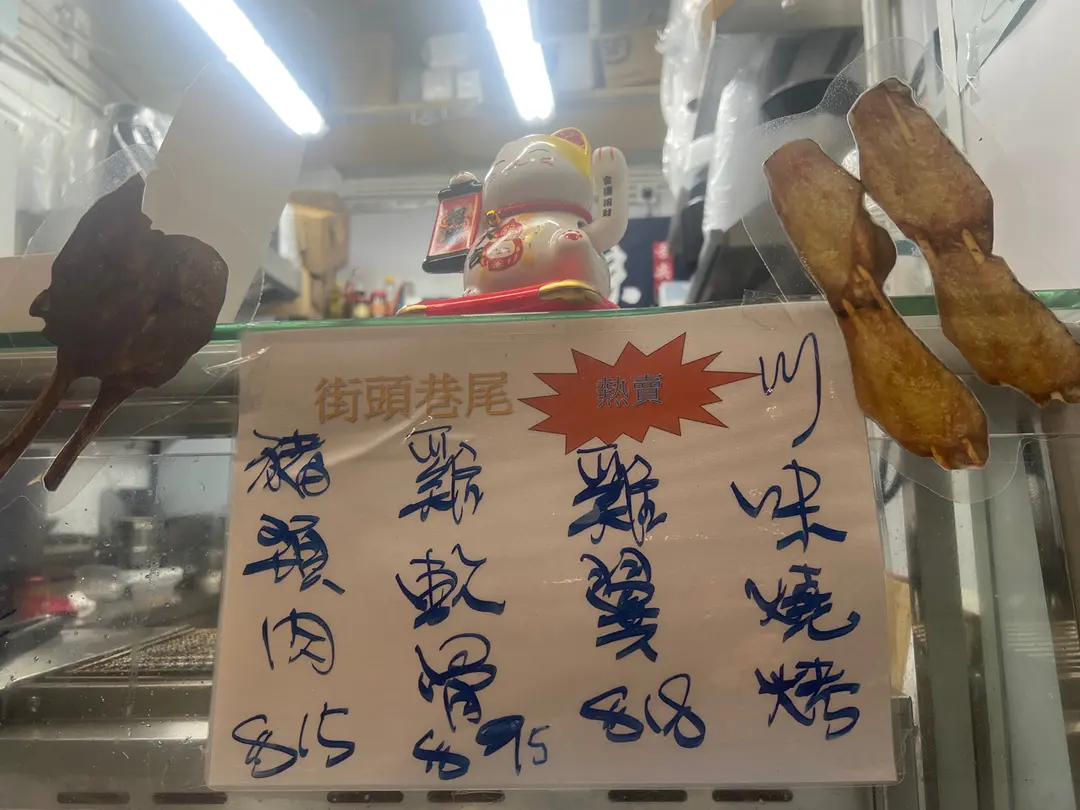 街頭巷尾
熱賣
川味燒烤
雞翼
$18
雞軟骨
豬頸肉
$15